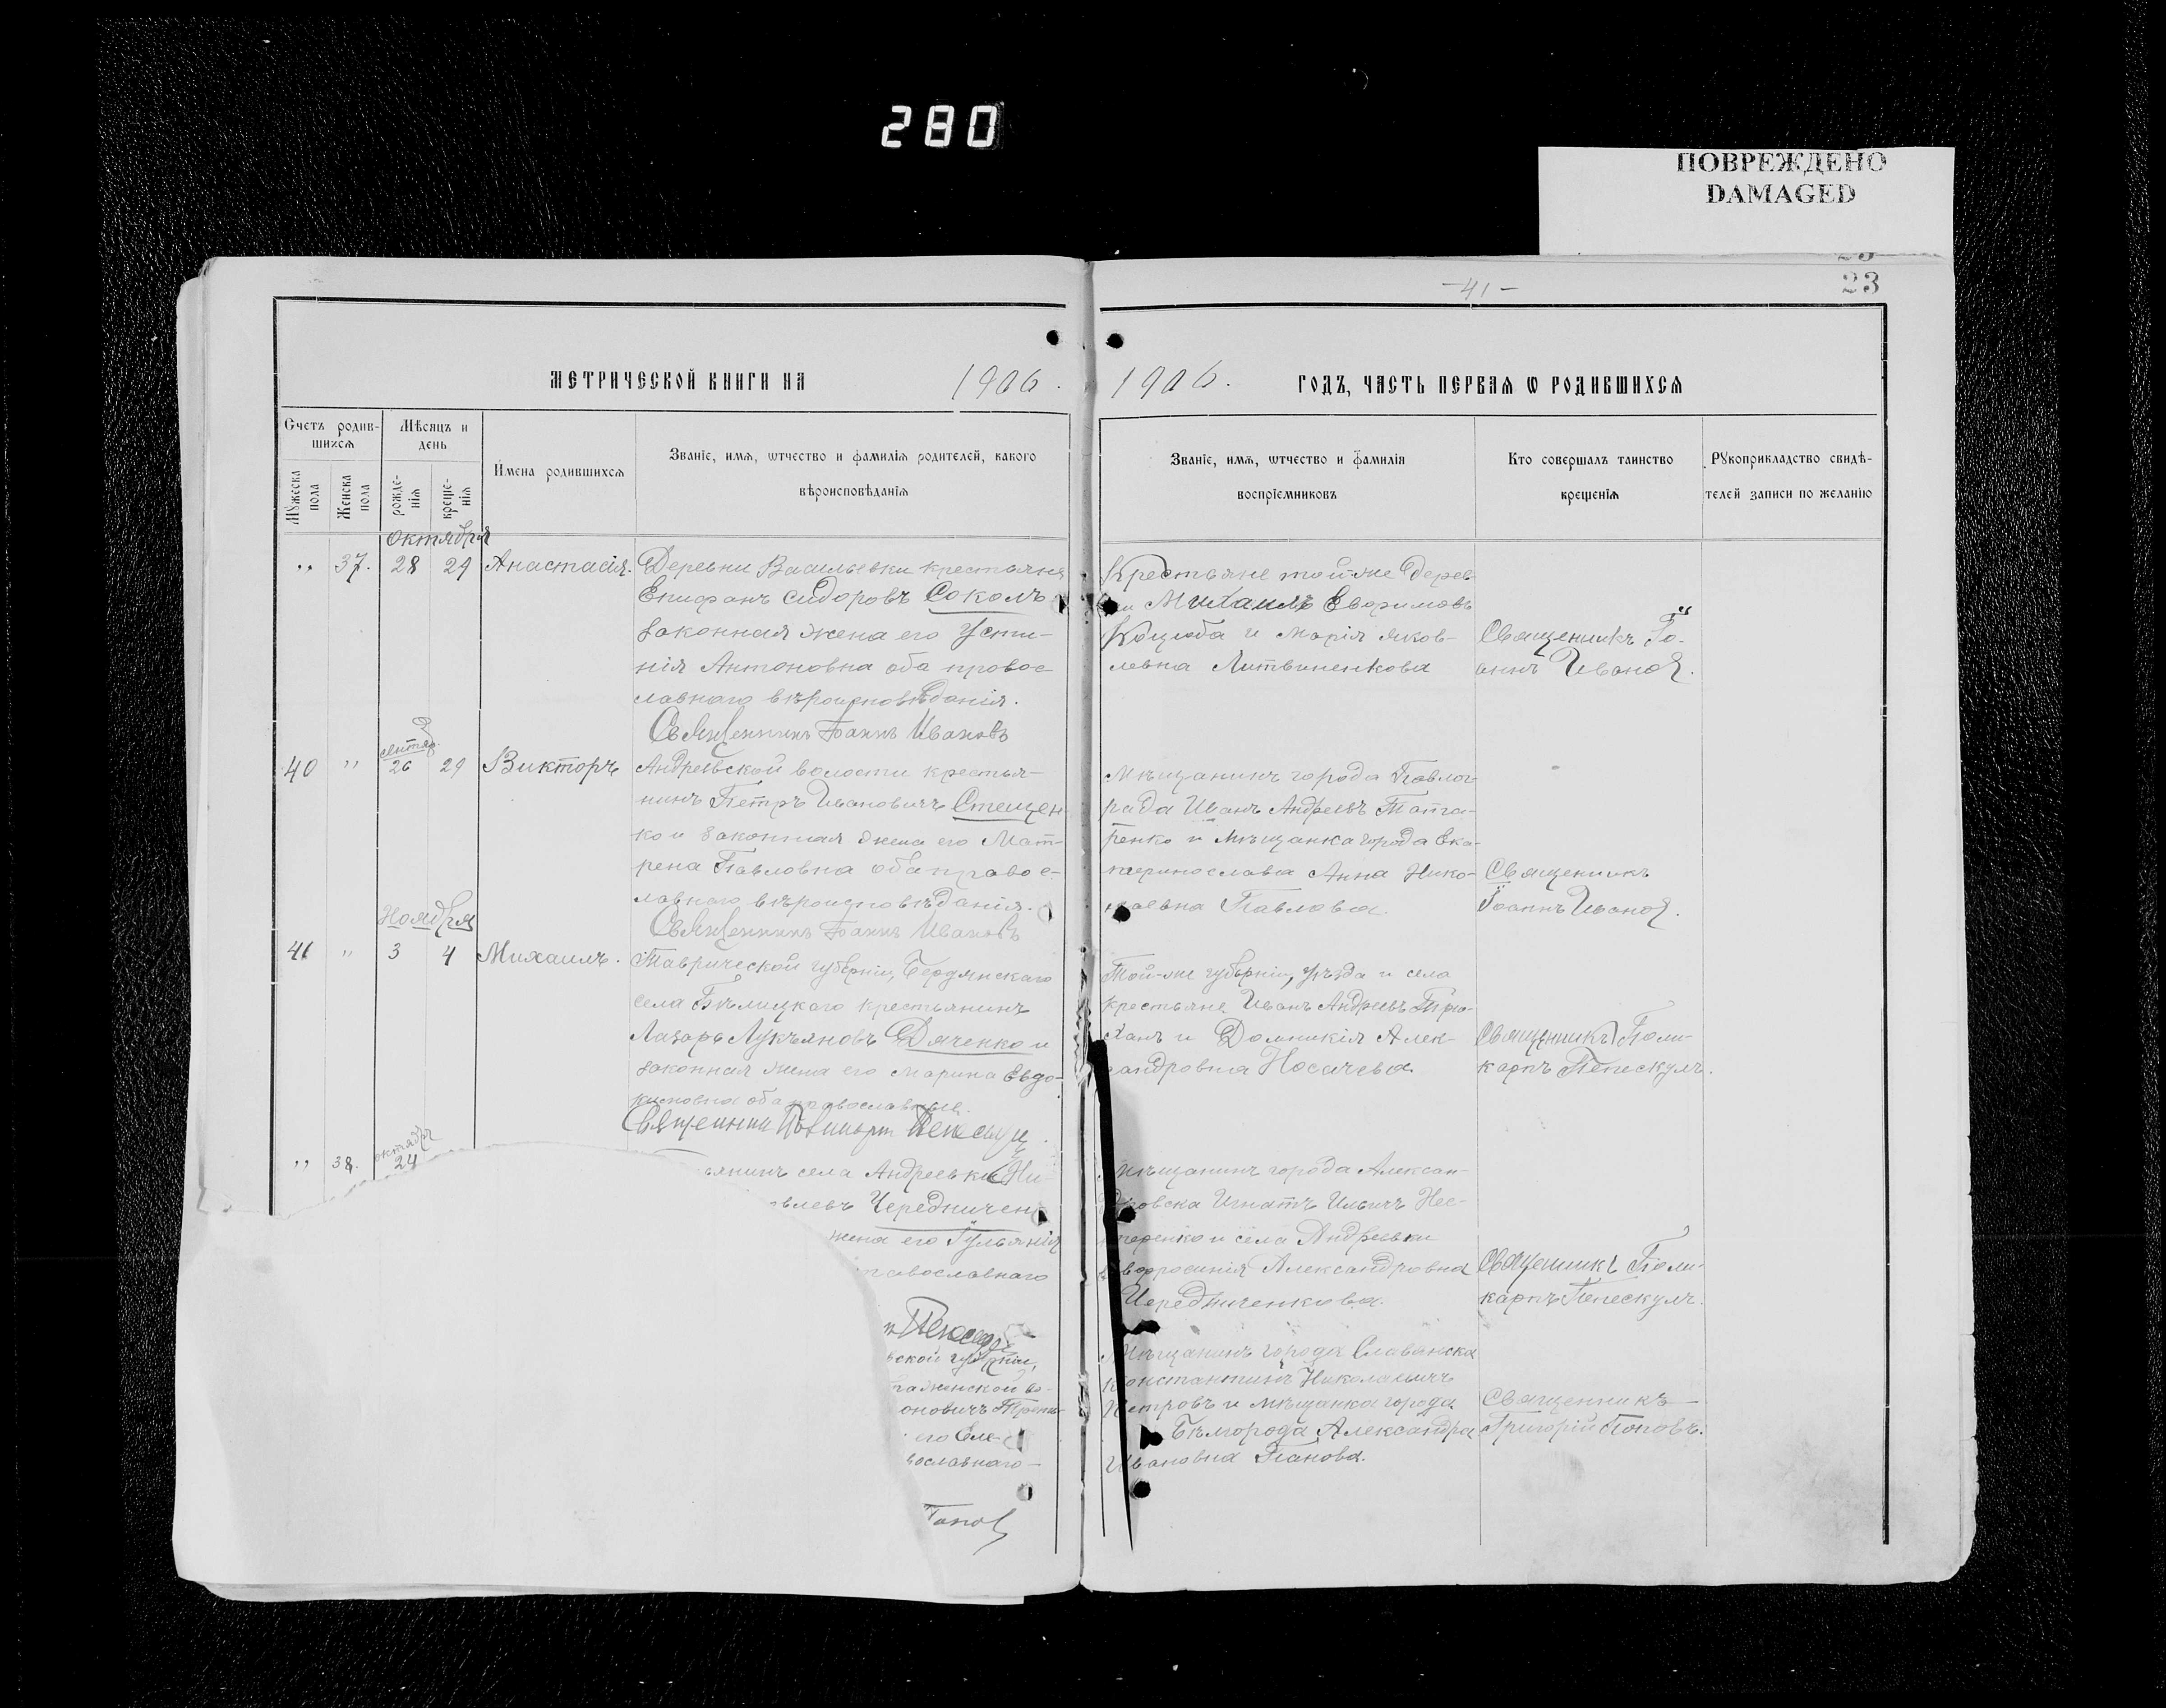 280
ПОВРЕЖДЕНО
DAMAGED
23
-41-
МЕТРИЧЕСКОЙ КНИГИ НА 1906.
1906. ГОДЪ, ЧАСТЬ ПЕРВАЯ Ѡ РОДИВШИХСЯ
Счетъ родив-
шихся
Мѣсяцъ и
день
Мужеска
пола
Женска
пола
рожде-
нія
креще-
нія
Имена родившихся
Званіе, имя, ѡтчество и фамилія родителей, какого
вѣроисповѣданія
Званіе, имя, ѡтчество и фамилія
воспріемниковъ
Кто совершалъ таинство
крещенія
Рукоприкладство свидѣ-
телей записи по желанію
октября
" 37. 28 29 Анастасія.
Деревни Васильевки крестьяне
Епифанъ Сидоровъ Соколъ
законная жена его Усти-
нія Антоновна оба правос-
лавнаго вѣроисповѣданія.
Священникъ Іоаннъ Ивановъ
Крестьяне той-же дерев-
Михаилъ Евфимовъ
Коцюба и Марія Яков-
левна Литвиненкова
Священникъ Іо-
аннъ Ивановъ.
40 " 26 29 Викторъ
Андреевской волости крестья-
нинъ Петръ Ивановичъ Стещен-
ко и законная жена его Мат-
рена Павловна оба правос-
лавнаго вѣроисповѣданія.
Священникъ Іоаннъ Ивановъ
Мѣщанинъ города Павлог-
рада Иванъ Андреевъ Татa-
ренко и мѣщанка города Ека-
теринослава Анна Нико-
лаевна Павлова.
Священникъ
Іоаннъ Ивановъ.
Ноября
41 " 3 4 Михаилъ.
Таврической губерніи, Бердянскаго
села Бѣлицкаго крестьянинъ
Лазарь Лукьяновъ Дяченко и
законная жена его Марина Евдо-
кимовна оба православные.
Священникъ
Той-же губерніи, уѣзда и села
крестьяне Иванъ Андреевъ Трю-
ханъ и Домникія Алек-
сандровна Носачева.
Священникъ Поли-
карпъ Пепескулъ.
октября
" 38. 24
села Андреевки Ни-
Чередничен
жена его Іульянія
православнаго
Мѣщанинъ города Алексан-
дровска Игнатъ Ильичъ Нес-
теренко и села Андреевки
Евфросинія Александровна
Чередниченкова.
Священникъ Поли-
карпъ Пепескулъ.
вской губерніи,
женской во-
оновичъ
его Еле-
вославнаго-
Поповъ
Мѣщанинъ города Славянска
Константинъ Николаевичъ
Петровъ и мѣщанка города
Бѣлгорода Александра
Ивановна Панова.
Священникъ
Григорій Поповъ.